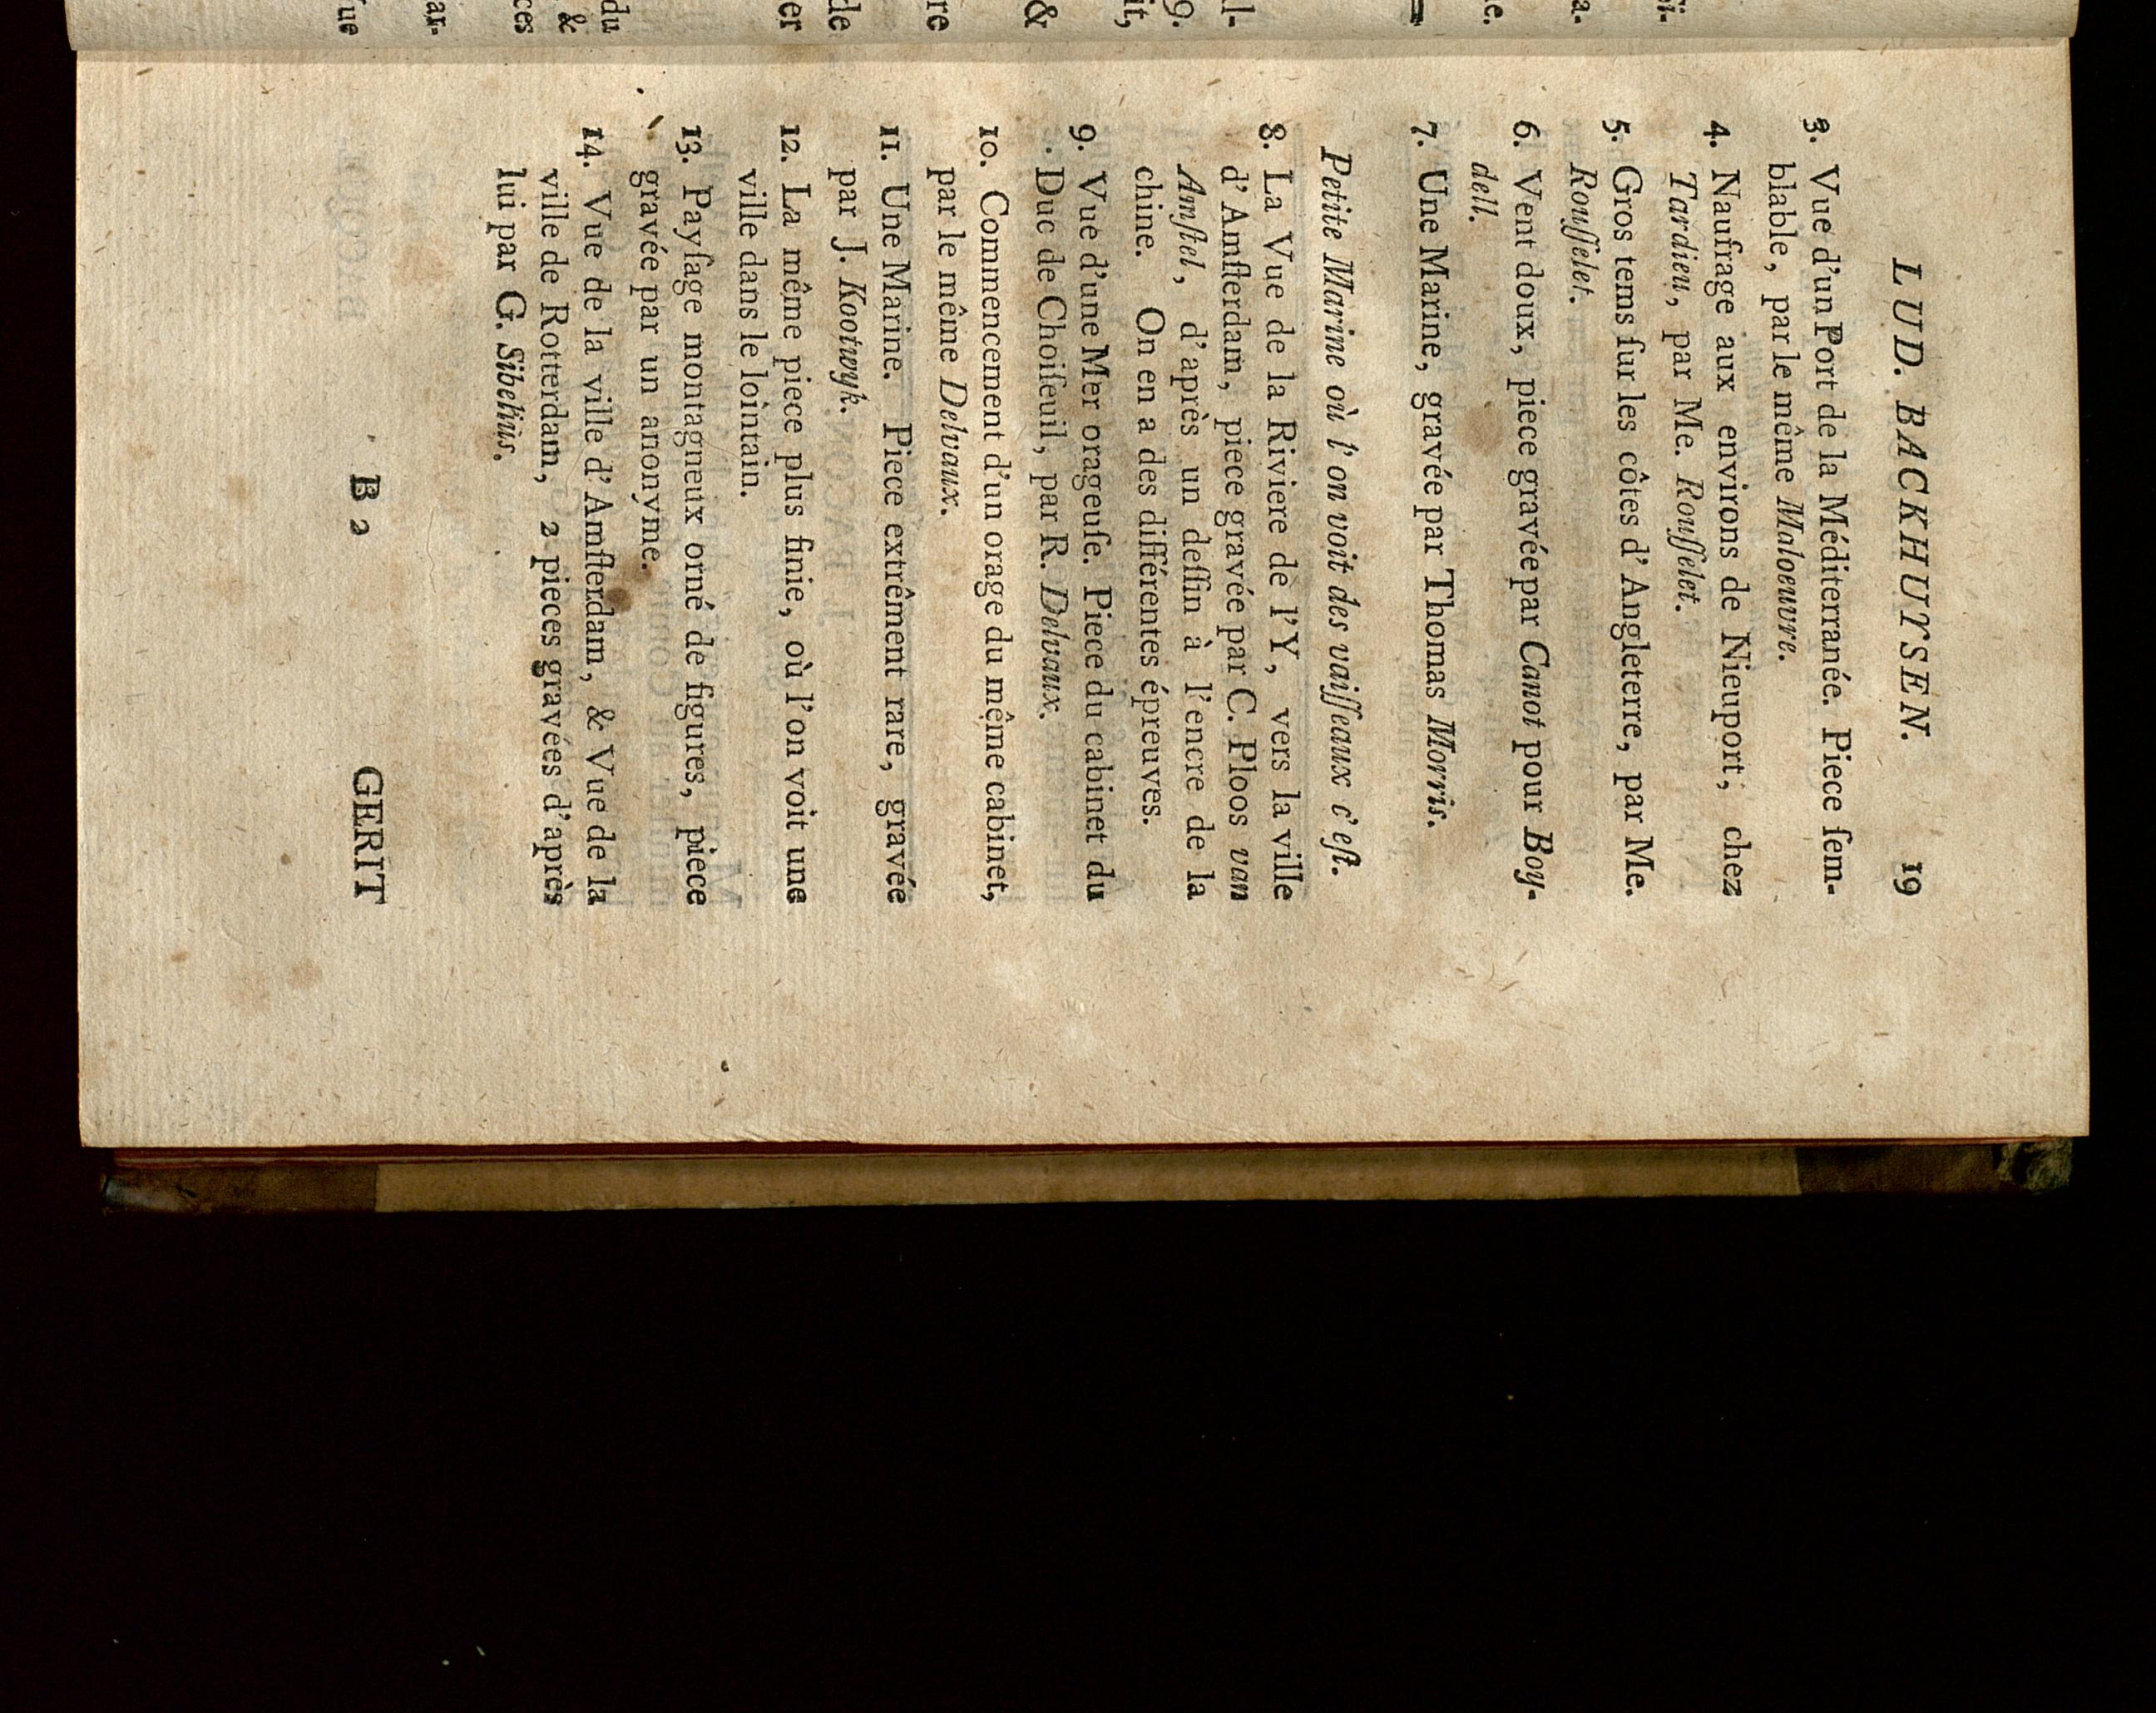 LUD. BACKHUYSEN. 19
3. Vue d'un Port de la Méditerranée. Piece ſem-
blable, par le même Maloeuvre.
4. Naufrage aux environs de Nieuport, chez
Tardieu, par Me. Rouſſelet.
5. Gros tems ſur les côtes d'Angleterre, par Me.
Rouſſelet.
6. Vent doux, piece gravée par Canot pour Boy-
dell.
7. Une Marine, gravée par Thomas Morris.
Petite Marine où l'on voit des vaiſſeaux c'eſt.
8. La Vue de la Riviere de l'Y, vers la ville
d'Amſterdam, piece gravée par C. Ploos van
Amſtel, d'après un deſſin à l'encre de la
chine. On en a des différentes épreuves.
9. Vue d'une Mer orageuſe. Piece du cabinet du
Duc de Choiſeuil, par R. Delvaux.
10. Commencement d'un orage du même cabinet,
par le même Delvaux.
11. Une Marine. Piece extrêment rare, gravée
par J. Kootwyk.
12. La même piece plus finie, où l'on voit une
ville dans le lointain.
13. Payſage montagneux orné de figures, piece
gravée par un anonyme.
14. Vue de la ville d'Amſterdam, & Vue de la
ville de Rotterdam, 2 pieces gravées d'après
lui par G. Sibelius.
B 2 GERIT